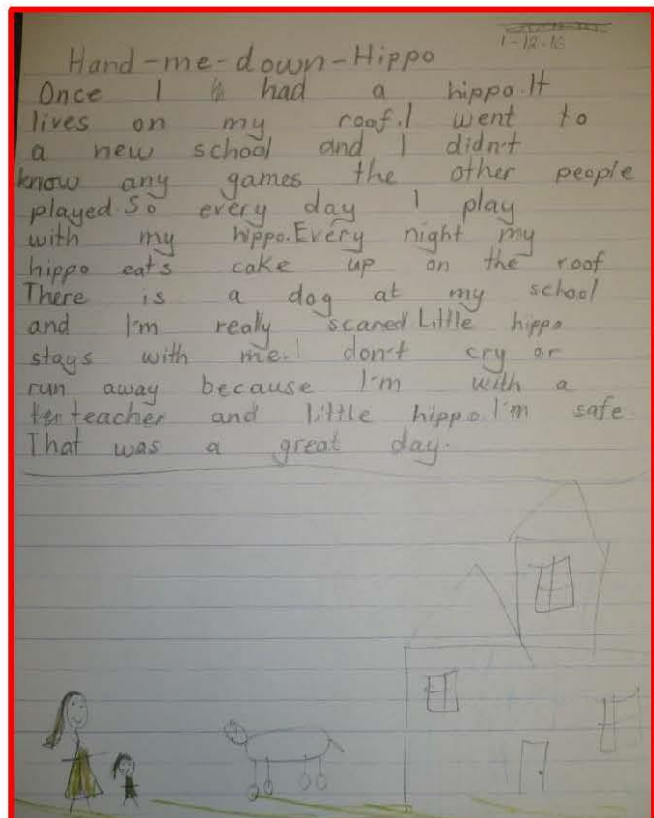 1-12-16
Hand-me-down-Hippo
Once I had a hippo.It
lives on my roof.I went to
a new school and I didn't
know any games the other people
played.So every day I play
with my hippo.Every night my
hippo eats cake up on the roof
There is a dog at my school
and I'm really scared Little hippo
stays with me.I don't cry or
run away because I'm with a
teacher and little hippo.I'm safe
That was a great day.